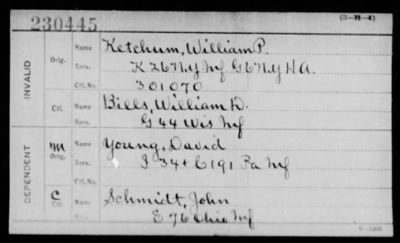 230445
(3-H-4)
INVALID
Orig.
Name Ketchum, William P.
Serv. K 26 N.Y. Inf G 6 N.Y. H A.
Ctf. No. 301070
Ctf.
Name Bills, William D.
Serv. G 44 Wis Inf
DEPENDENT
M
Orig.
Name Young, David
Serv. I 34 + C 191 Pa Inf
Ctf. No.
C
Ctf.
Name Schmidt, John
Serv. E 76 Ohio Inf